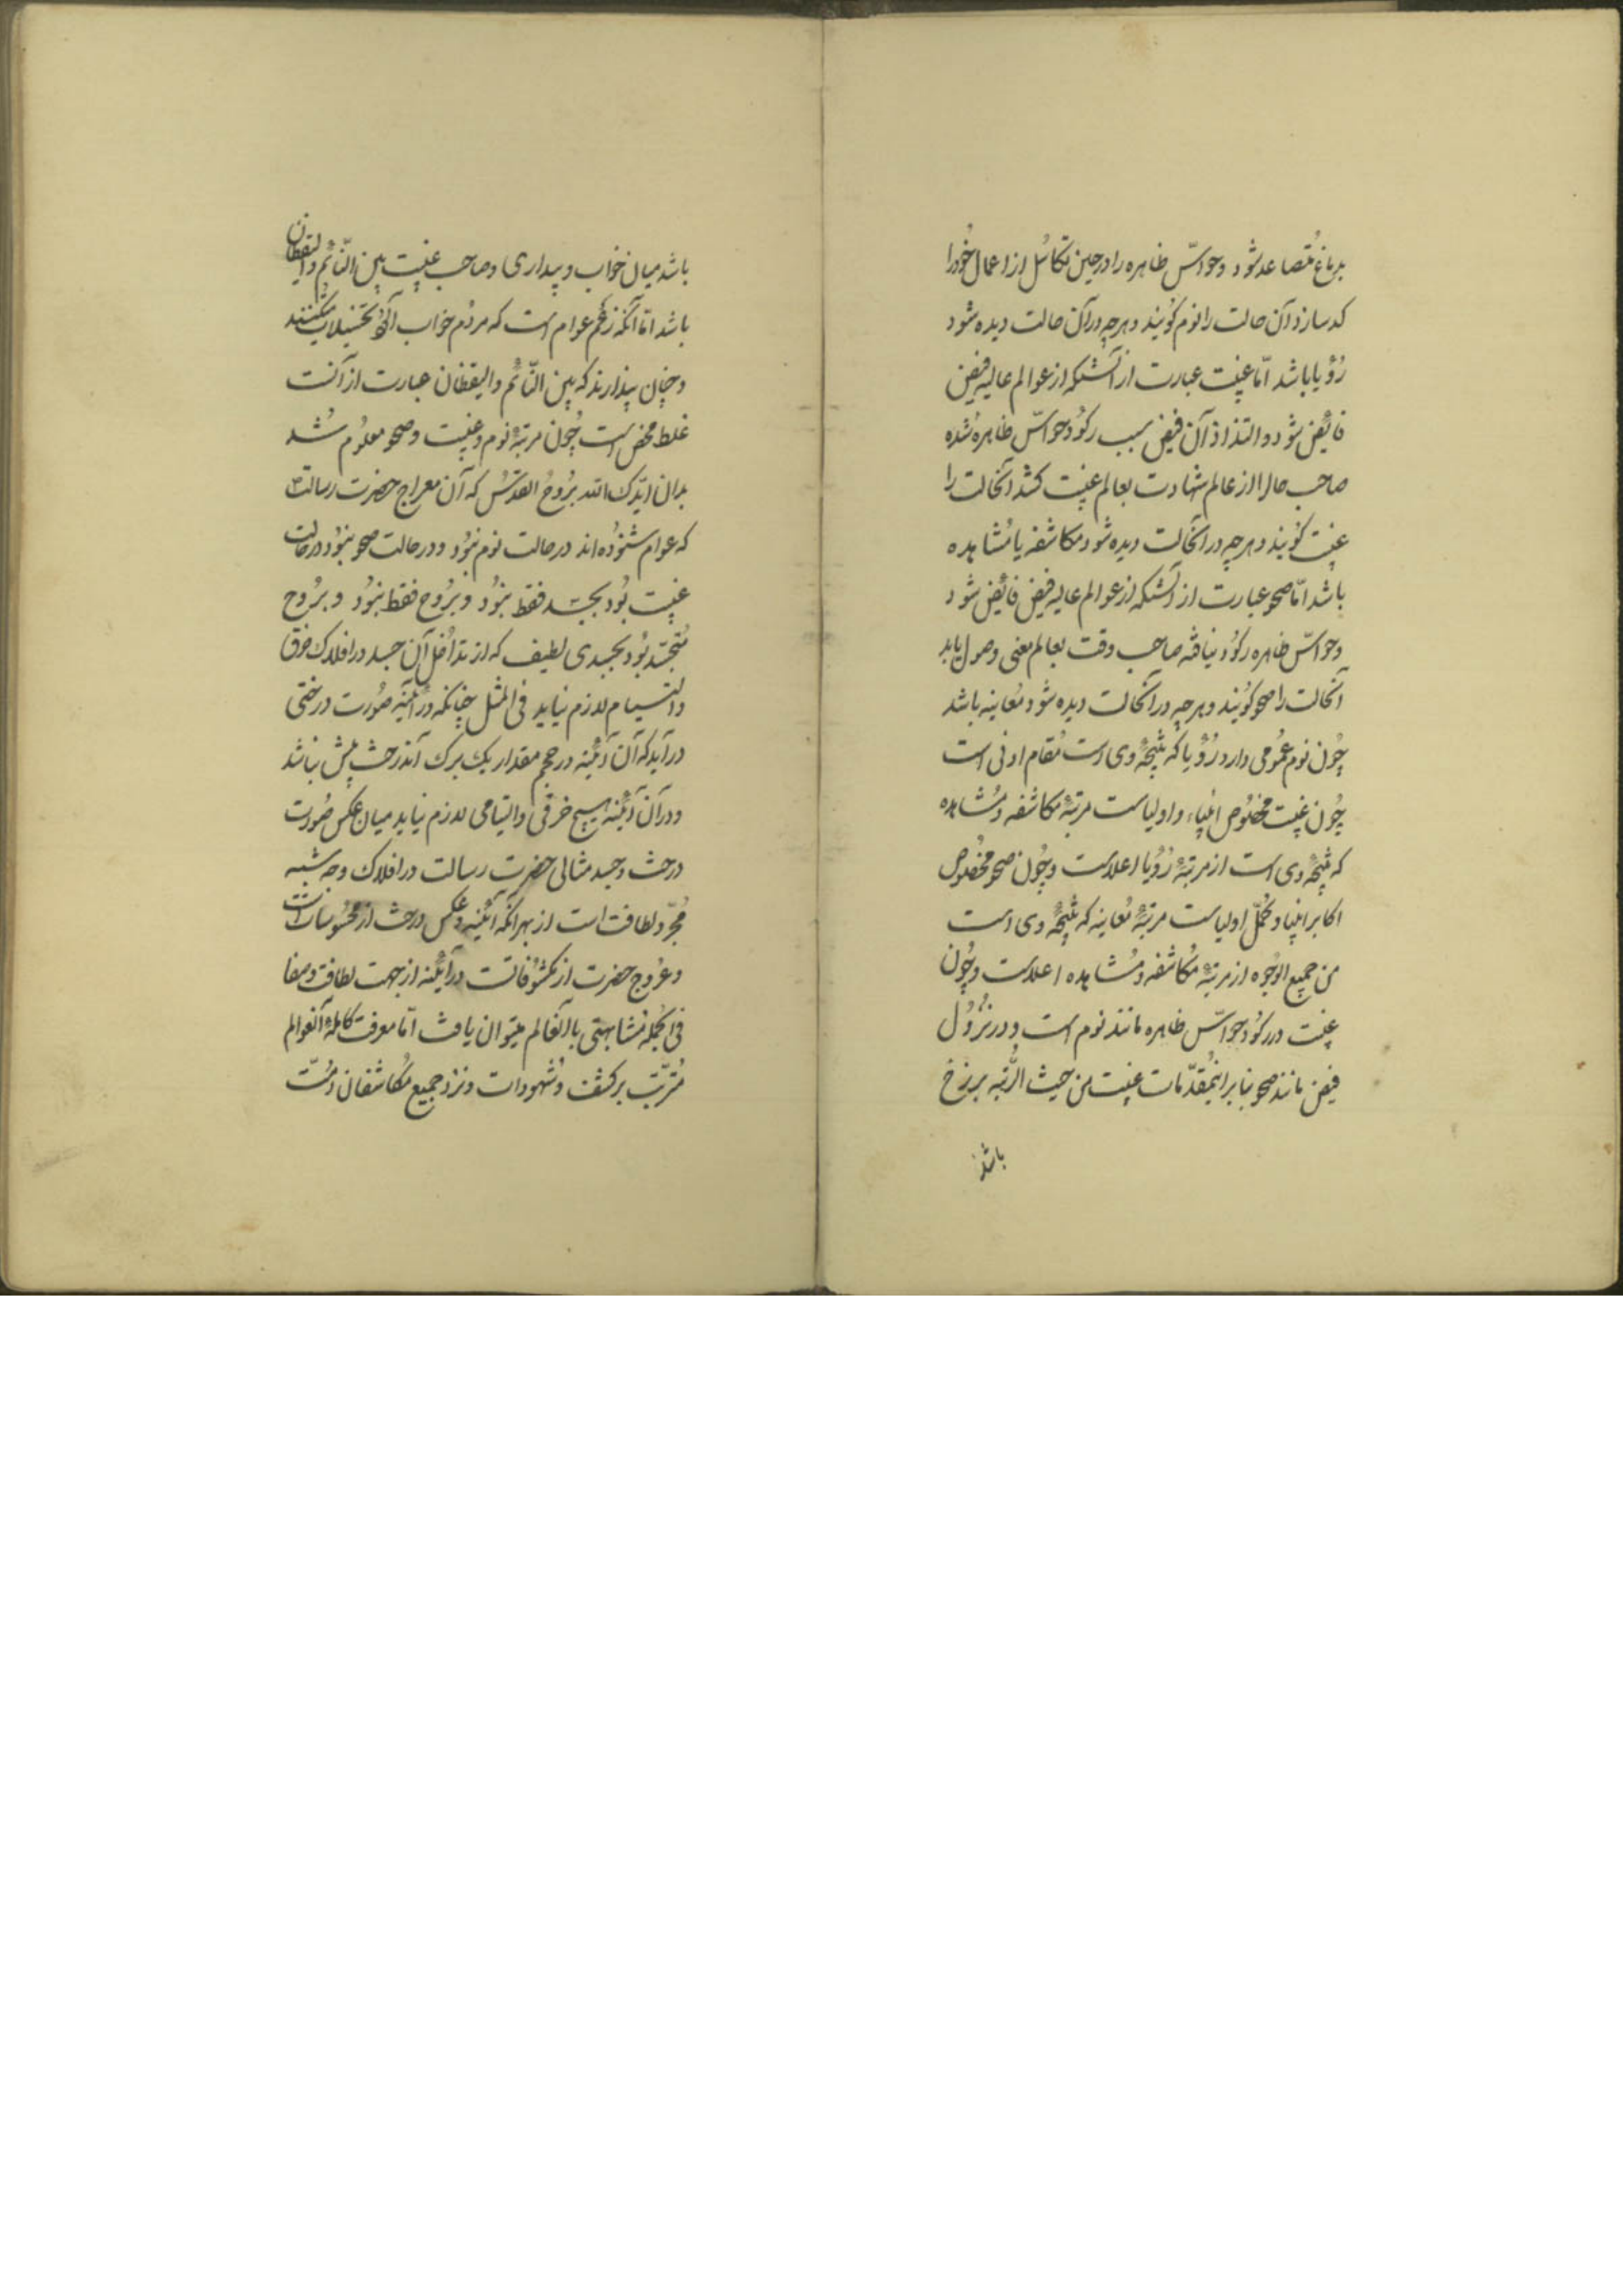 بدماغ مُتصاعد شود وحواسّ ظاهره را در حین تکاسُل از اعمال خُود را
کد سازد آن حالت را نوم کُویند و هرچه در آن حالت دیده شود
رُؤیا باشد امّا غیبت عبارت از آنستکه از عوالم عالیه فیض
فائض شود و التذاذ آن فیض سبب رکُود حواسّ ظاهره شده
صاحب حال را از عالم شهادت بعالم غیبت کشد آنحالت را
غیبت کُویند و هرچه در آنحالت دیده شود مکاشفه یا مُشاهده
باشد امّا صحو عبارت از آنستکه از عوالم عالیه فیض فائض شود
وحواسّ ظاهره رکُود نیافته صاحب وقت بعالم معنی وصول یابد
آنحالت را صحو کُویند و هرچه در آنحالت دیده شود مُعاینه باشد
چُون نوم عُمُومی دارد رُؤیا که نتیجۀ وی است مُقام ادنی است
چُون غیبت مخصُوص انبیاء و اولیاست مرتبۀ مکاشفه و مُشاهده
که نتیجۀ وی است از مرتبۀ رُؤیا اعلاست و چُون صحو مخصُوص
اکابر انبیا و کُمّل اولیاست مرتبۀ مُعاینه که نتیجۀ وی است
من جمیع الوُجوه از مرتبۀ مُکاشفه و مُشاهده اعلاست و چُون
غیبت در رکُود حواسّ ظاهره مانند نوم است و در نزُول
فیض مانند صحو بنابر اینمُقدّمات غیبت من حیث الرُّتبه برزخ
باشد
باشد میان خواب و بیداری و صاحب غیبت بین النّائم والیقظان
باشد امّا آنکه زعُم عوام است که مردُم خواب آلُود تخییلات میکنند
و چنان پندارند که بین النّائم والیقظان عبارت از آنست
غلط محض است چُون مرتبۀ نوم و غیبت و صحو معلوُم شُد
بدان ایّدک الله برُوح القدس که آن معراج حضرت رسالت
که عوام شنوُده اند در حالت نوم نبوُد و در حالت صحو نبوُد در حالت
غیبت بُود بجسد فقط نبوُد و برُوح فقط نبوُد و برُوح
مُتجسّد بوُد بجسدی لطیف که از تداخُل آن جسد در افلاک خرق
و التیام لازم نیاید فی المثل چنانکه در آئینه صوُرت درختی
در آید که آن آئینه در حجم مقدار یک برک آندرخت بیش نباشد
و در آن آئینه هیچ خرقی و التیامی لازم نیاید میان عکس صوُرت
درخت و جسد مثالی حضرت رسالت در افلاک وجه شبه
مُجرّد لطافت است از بهر آنکه آئینه و عکس درخت از محسُوسات است
و عُروج حضرت از مکشُوفاتست در آئینه از جهت لطافت و صفا
فی الجُمله مُشابهتی با آنعالم میتوان یافت امّا معرفت کاملۀ آنعوالم
مُترتّبت بر کشف و شُهودات و نزد جمیع مُکاشفان اُمّت